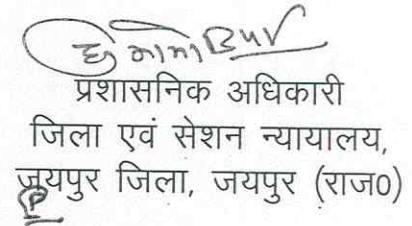 प्रशासनिक अधिकारी
जिला एवं सेशन न्यायालय,
जयपुर जिला, जयपुर (राज0)